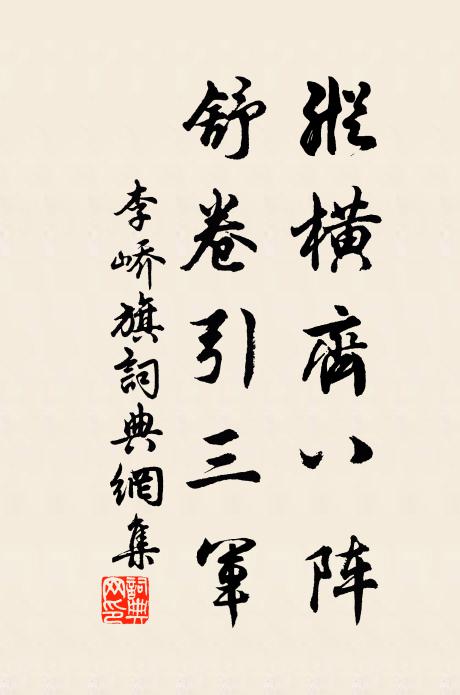 縱橫齊八阵
舒卷引三軍
李嶠旗詞典網集
詞典网印